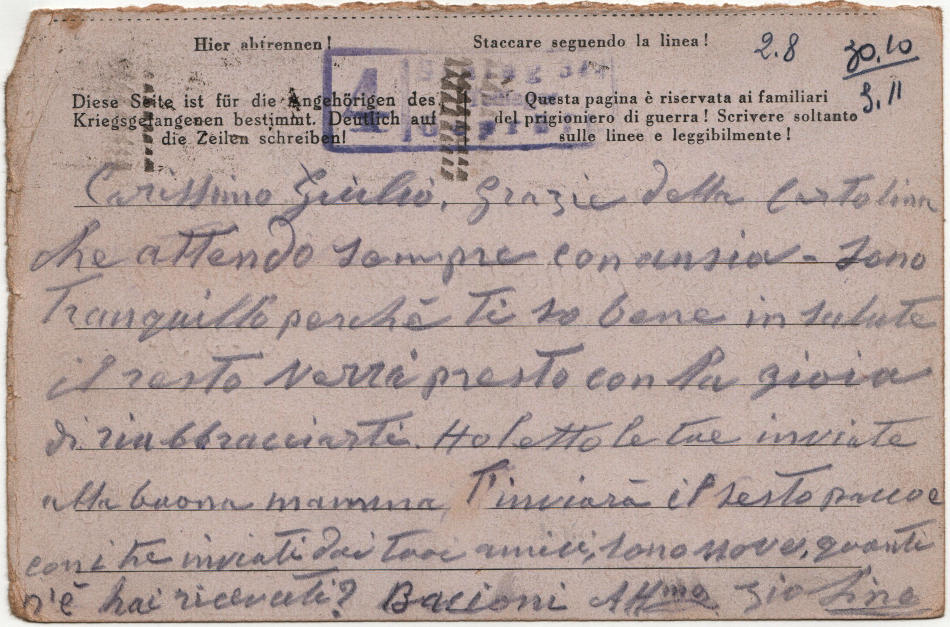 Hier abtrennen!
Staccare seguendo la linea!
2.8
30.10
9.11
Diese Seite ist für die Angehörigen des
Kriegsgefangenen bestimmt. Deutlich auf
die Zeilen schreiben!
4
Questa pagina è riservata ai familiari
del prigioniero di guerra! Scrivere soltanto
sulle linee e leggibilmente!
Carissimo Giulio, Grazie della Cartolina
che attendo sempre con ansia - Sono
Tranquillo perchè ti so bene in salute
il resto verrà presto con la gioia
di riabbracciarti. Ho letto le tue inviate
alla buona mamma, T'invierà il sesto pacco e
con i tre inviati dai tuoi amici, sono nove, quanti
n'è hai ricevuti? Bacioni Aff.mo zio Lino